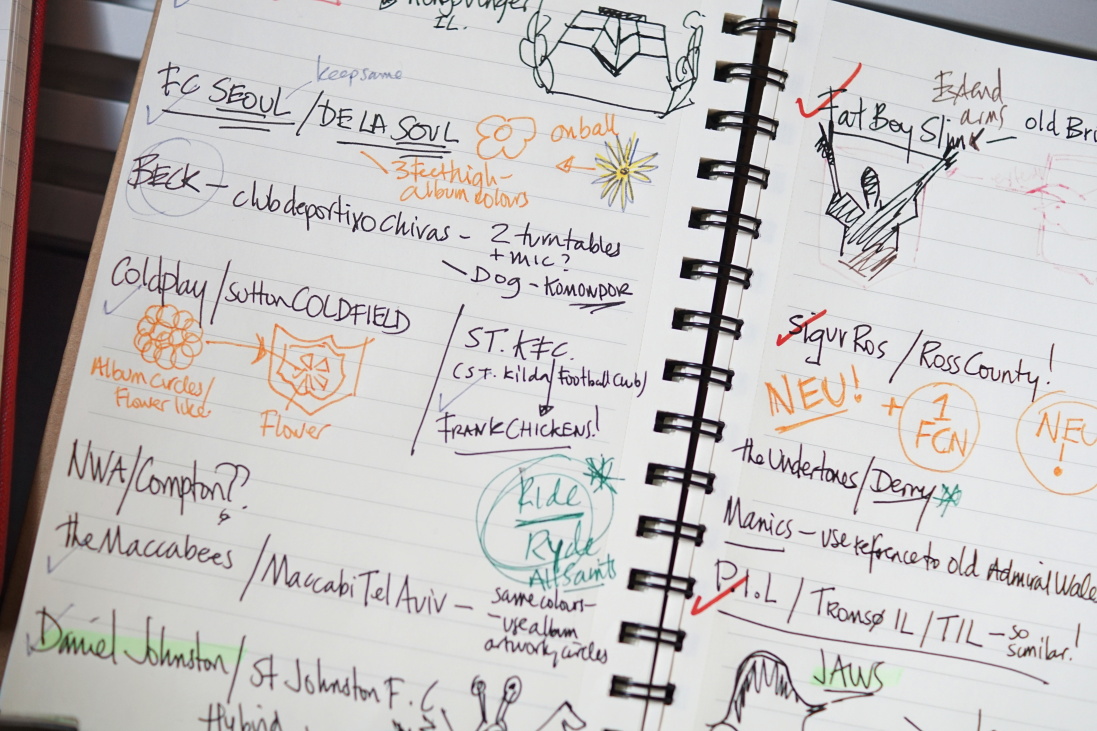 IL.
keep same
FC SEOUL / DE LA SOUL
on ball
3 Feet high -
album colours
BECK - club deportivo Chivas - 2 turntables
+ mic?
Dog - KOMONDOR
Coldplay / Sutton COLDFIELD
Album circles /
Flower like.
Flower
ST. K F.C.
(ST. Kilda Football Club)
FRANK CHICKENS!
NWA / Compton??
Ride
Ryde
All Saints
the Maccabees / Maccabi Tel Aviv -
same colours -
- use album
artwork circles
Daniel Johnston / St Johnston F.C
Hybrid
Extend
arms
Fat Boy Slim - old Bru
Sigur Ros / Ross County!
NEU! + 1
FCN
NEU
!
the Undertones / Derry
Manics - use reference to old Admiral Wale
P.I.L / Tromsø IL / TIL - so
similar!
JAWS